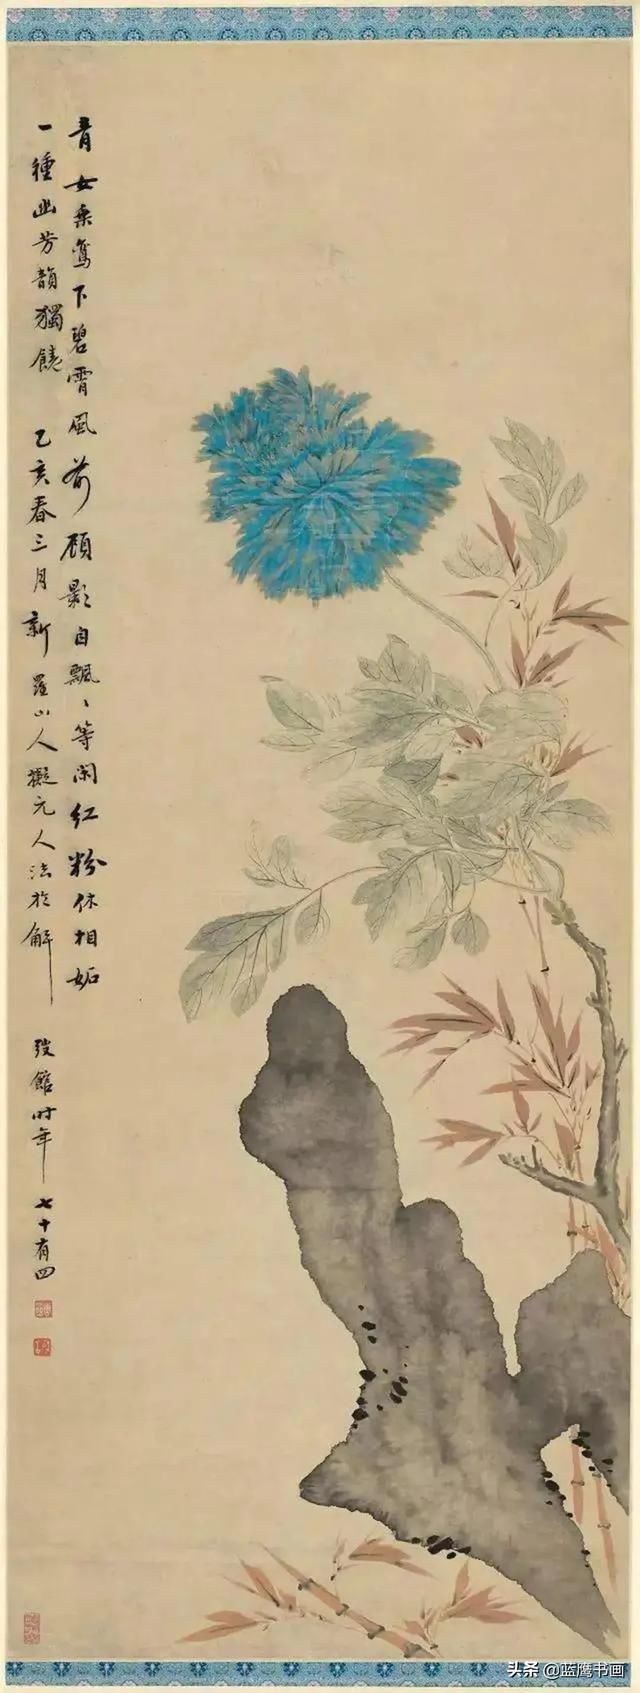 青女乘鸞下碧霄風前顧影自飄〻等閑紅粉休相妬
一種幽芳韻獨饒 乙亥春三月新羅山人擬元人法於解
弢館時年七十有四
头条 @蓝鹰书画